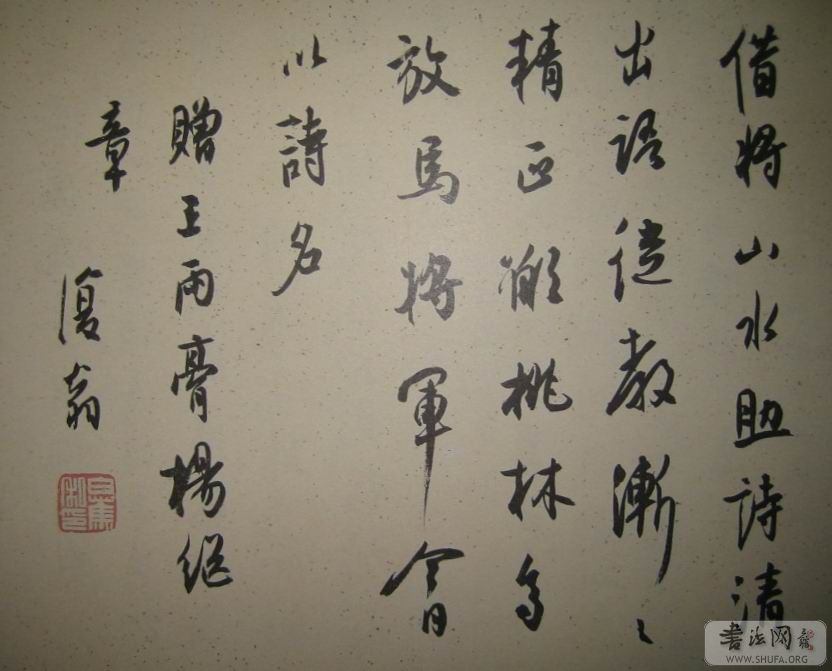 借将山水助詩清
出語従教漸〻
精正桃林
放馬将軍今日
以詩名
贈王雨膏楊继
章 復翁
書法网
WWW.SHUFA.ORG